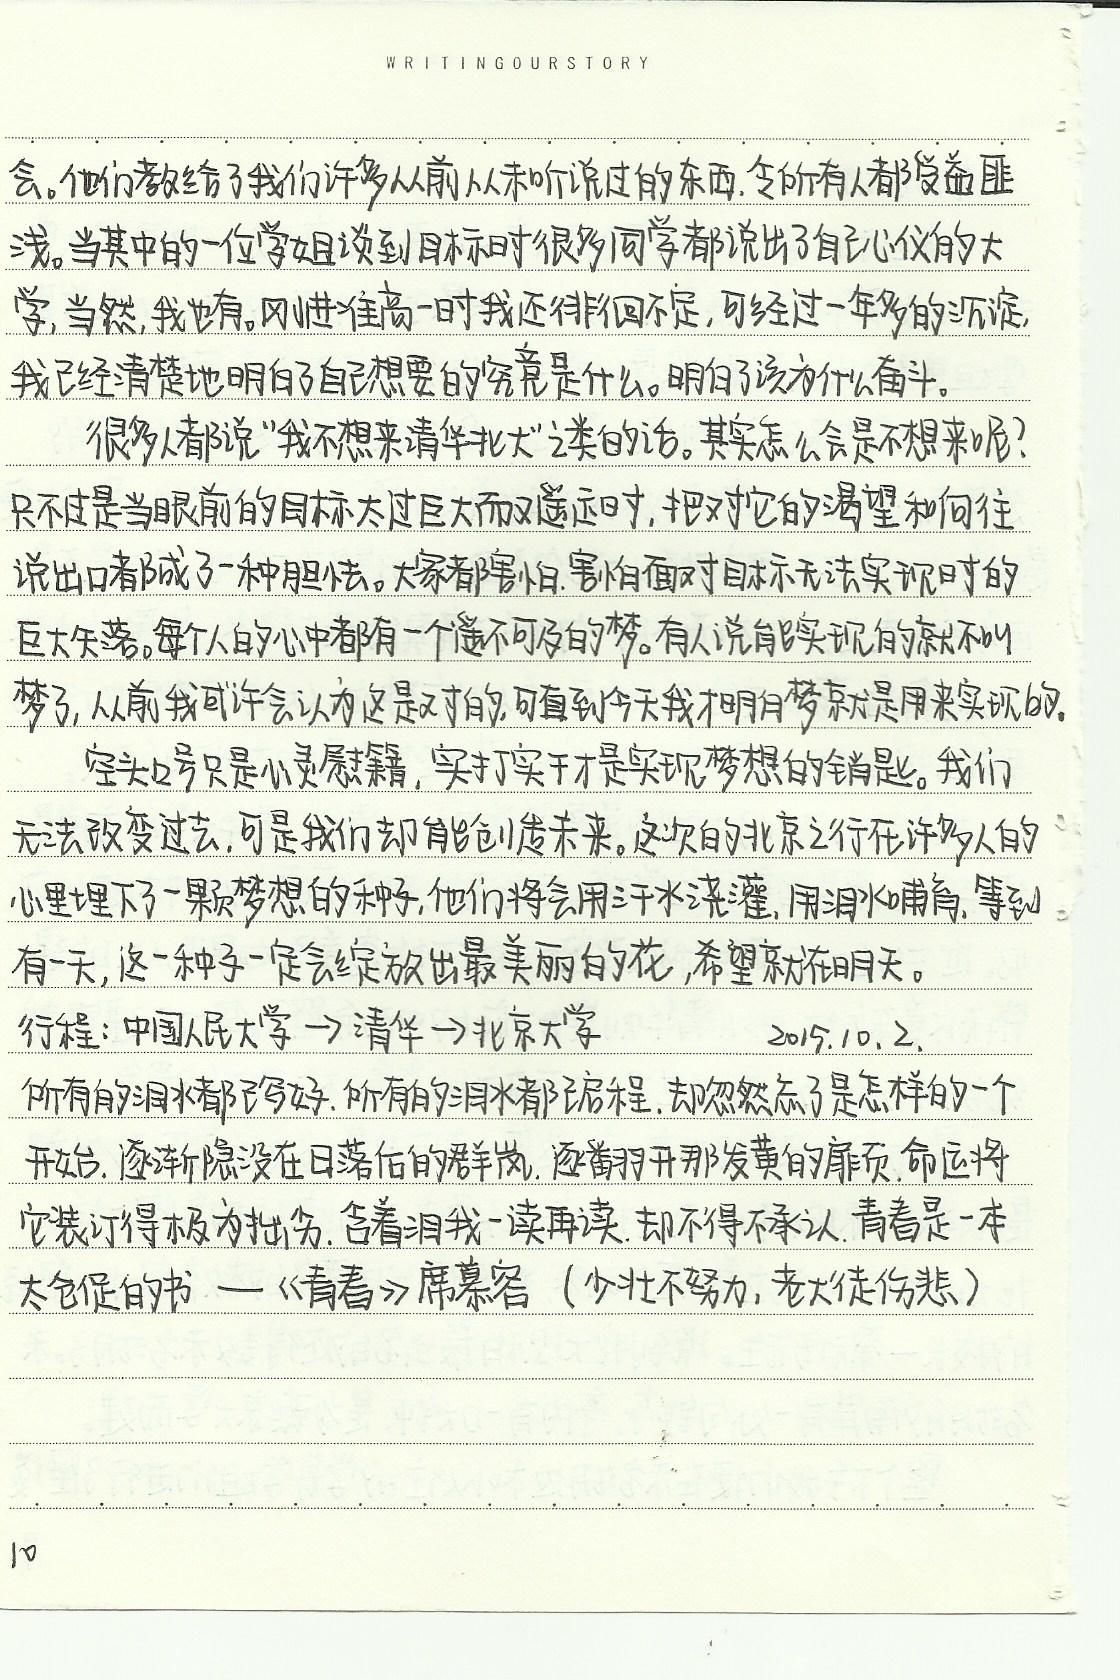 WRITINGOURSTORY
会。他们教给了我们许多从前从未听说过的东西.令所有人都受益匪
浅。当其中的一位学姐谈到目标时很多同学都说出了自己心仪的大
学,当然,我也有。刚进准高一时我还徘徊不定,可经过一年多的沉淀,
我已经清楚地明白了自己想要的究竟是什么。明白了该为什么奋斗。
很多人都说“我不想来清华北大”之类的话。其实怎么会是不想来呢?
只不过是当眼前的目标太过巨大而又遥远时,把对它的渴望和向往
说出口都成了一种胆怯。大家都害怕.害怕面对目标无法实现时的
巨大失落。每个人的心中都有一个遥不可及的梦。有人说能实现的就不叫
梦了,从前我或许会认为这是对的,可直到今天我才明白梦就是用来实现的.
空头口号只是心灵慰籍,实打实干才是实现梦想的销匙。我们
无法改变过去,可是我们却能创造未来。这次的北京之行在许多人的
心里埋下了一颗梦想的种子,他们将会用汗水浇灌,用泪水哺育,等到
有一天,这一种子一定会绽放出最美丽的花,希望就在明天。
行程:中国人民大学→清华→北京大学 2015.10.2.
所有的泪水都已写好.所有的泪水都已启程.却忽然忘了是怎样的一个
开始.逐渐隐没在日落后的群岚.逐翻开那发黄的扉页.命运将
它装订得极为拙劣.含着泪我一读再读.却不得不承认.青春是一本
太仓促的书 —《青春》席慕容 (少壮不努力,老大徒伤悲)
10